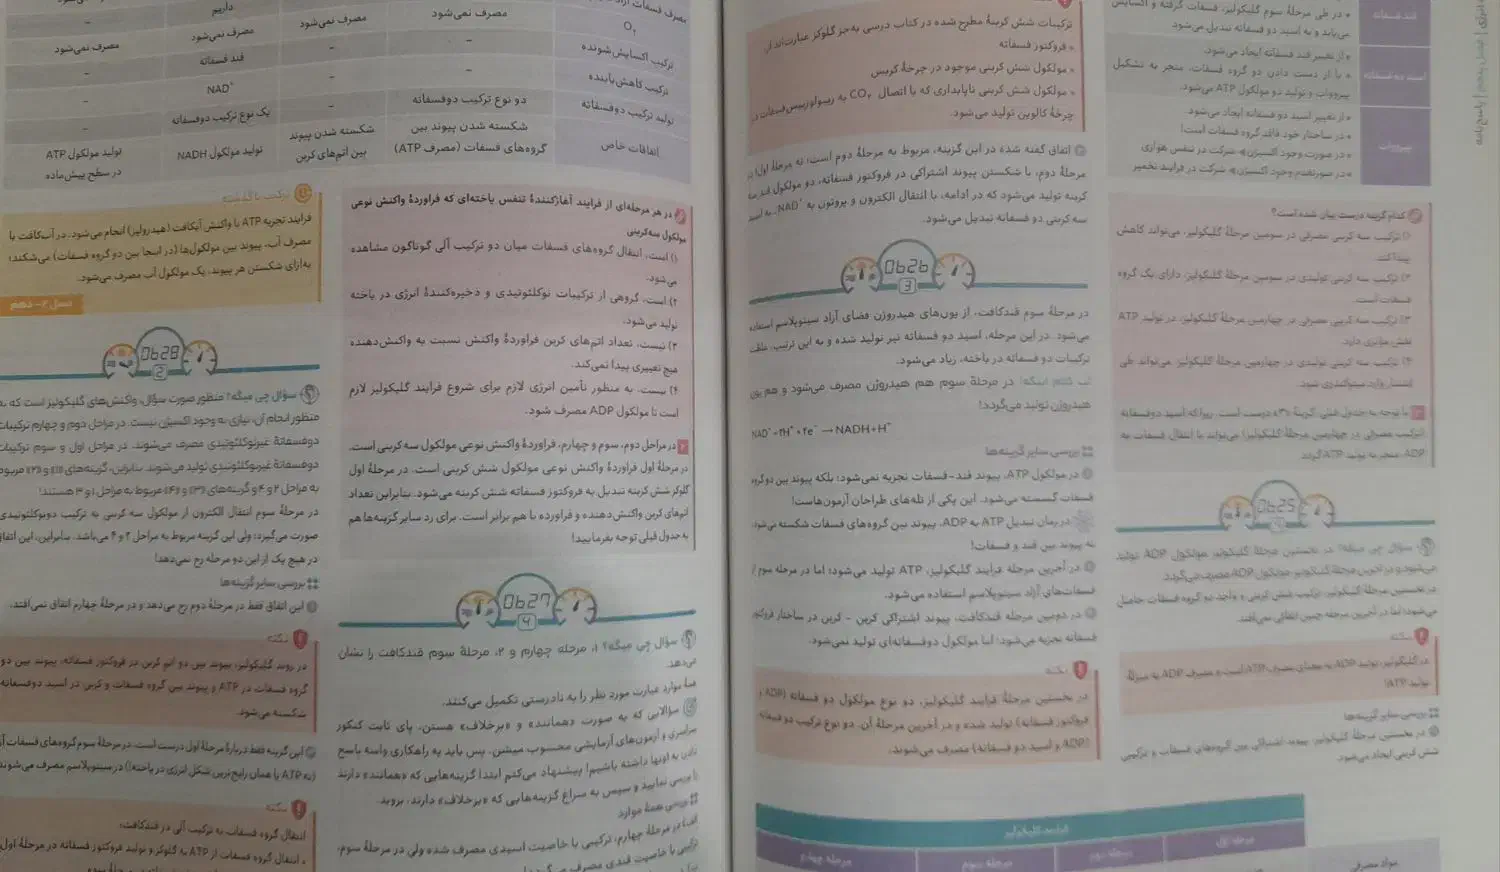 انرژی | فصل پنجم | پاسخ‌نامه
قند فسفاته
در طی مرحلهٔ سوم گلیکولیز، فسفات گرفته و اکسایش
می‌یابد و به اسید دو فسفاته تبدیل می‌شود.
اسید دو فسفاته
از تغییر قند فسفاته ایجاد می‌شود.
با از دست دادن دو گروه فسفات، منجر به تشکیل
پیرووات و تولید دو مولکول ATP می‌شود.
پیرووات
از تغییر اسید دو فسفاته ایجاد می‌شود.
در ساختار خود فاقد گروه فسفات است!
در صورت وجود اکسیژن شرکت در تنفس هوازی
در صورت عدم وجود اکسیژن شرکت در فرایند تخمیر
کدام گزینه درست بیان شده است؟
۱) ترکیب سه کربنی مصرفی در سومین مرحلهٔ گلیکولیز، می‌تواند کاهش
پیدا کند.
۲) ترکیب سه کربنی تولیدی در سومین مرحلهٔ گلیکولیز، دارای یک گروه
فسفات است.
۳) ترکیب سه کربنی مصرفی در چهارمین مرحلهٔ گلیکولیز، در تولید ATP
نقش مؤثری دارد.
۴) ترکیب سه کربنی تولیدی در چهارمین مرحلهٔ گلیکولیز، می‌تواند طی
انتشار وارد میتوکندری شود.
با توجه به جدول قبلی، گزینهٔ «۳» درست است. زیرا که اسید دوفسفاته
(ترکیب مصرفی در چهارمین مرحلهٔ گلیکولیز) می‌تواند با انتقال فسفات به
ADP، منجر به تولید ATP گردد.
0625
سؤال چی میگه؟ در نخستین مرحلهٔ گلیکولیز، مولکول ADP تولید
می‌شود و در آخرین مرحلهٔ گلیکولیز، مولکول ADP مصرف می‌گردد.
در نخستین مرحلهٔ گلیکولیز، ترکیب شش کربنی و واجد دو گروه فسفات حاصل
می‌شود؛ اما در آخرین مرحله چنین اتفاقی نمی‌افتد.
نکته
در گلیکولیز، تولید ADP به معنای مصرف ATP است و مصرف ADP به منزلهٔ
تولید ATP!
بررسی سایر گزینه‌ها
در نخستین مرحلهٔ گلیکولیز، پیوند اشتراکی بین گروه‌های فسفات و ترکیبی
شش کربنی ایجاد می‌شود.
ترکیبات شش کربنهٔ مطرح شده در کتاب درسی به‌جز گلوکز عبارت‌اند از:
فروکتوز فسفاته
مولکول شش کربنی موجود در چرخهٔ کربس
مولکول شش کربنی ناپایداری که با اتصال CO₂ به ریبولوزبیس‌فسفات در
چرخهٔ کالوین تولید می‌شود.
اتفاق گفته شده در این گزینه، مربوط به مرحلهٔ دوم است؛ نه مرحلهٔ اول! در
مرحلهٔ دوم، با شکستن پیوند اشتراکی در فروکتوز فسفاته، دو مولکول قند سه
کربنه تولید می‌شود که در ادامه، با انتقال الکترون و پروتون به NAD⁺، به اسید
سه کربنی دو فسفاته تبدیل می‌شود.
0626
3
در مرحلهٔ سوم قندکافت، از یون‌های هیدروژن فضای آزاد سیتوپلاسم استفاده
می‌شود. در این مرحله، اسید دو فسفاته نیز تولید شده و به این ترتیب، غلظت
ترکیبات دو فسفاته در یاخته، زیاد می‌شود.
در مرحلهٔ سوم هم هیدروژن مصرف می‌شود و هم یون
هیدروژن تولید می‌گردد!
NAD⁺ + ۲H⁺ + ۲e⁻ → NADH + H⁺
بررسی سایر گزینه‌ها
در مولکول ATP، پیوند قند - فسفات تجزیه نمی‌شود؛ بلکه پیوند بین دو گروه
فسفات گسسته می‌شود. این یکی از تله‌های طراحان آزمون‌هاست!
در زمان تبدیل ATP به ADP، پیوند بین گروه‌های فسفات شکسته می‌شود،
نه پیوند بین قند و فسفات!
در آخرین مرحلهٔ فرایند گلیکولیز، ATP تولید می‌شود؛ اما در مرحلهٔ سوم از
فسفات‌های آزاد سیتوپلاسم استفاده می‌شود.
در دومین مرحلهٔ قندکافت، پیوند اشتراکی کربن - کربن در ساختار فروکتوز
فسفاته تجزیه می‌شود؛ اما مولکول دوفسفاته‌ای تولید نمی‌شود.
نکته
در نخستین مرحلهٔ فرایند گلیکولیز، دو نوع مولکول دو فسفاته (ADP و
فروکتوز فسفاته) تولید شده و در آخرین مرحلهٔ آن، دو نوع ترکیب دو فسفاته
(ADP و اسید دو فسفاته) مصرف می‌شوند.
فرایند گلیکولیز
مرحله اول
مرحله دوم
مرحله سوم
مرحله چهارم
مواد مصرفی
O₂
مصرف نمی‌شود
مصرف نمی‌شود
مصرف نمی‌شود
مصرف نمی‌شود
ترکیب اکسایش‌شونده
–
–
قند فسفاته
–
ترکیب کاهش‌یابنده
–
–
NAD⁺
–
تولید ترکیب دوفسفاته
دو نوع ترکیب دوفسفاته
–
یک نوع ترکیب دوفسفاته
–
اتفاقات خاص
شکسته شدن پیوند بین
گروه‌های فسفات (مصرف ATP)
شکسته شدن پیوند
بین اتم‌های کربن
تولید مولکول NADH
تولید مولکول ATP
در سطح پیش‌ماده
در هر مرحله‌ای از فرایند آغازکنندهٔ تنفس یاخته‌ای که فراوردهٔ واکنش نوعی
مولکول سه‌کربنی
۱) است، انتقال گروه‌های فسفات میان دو ترکیب آلی گوناگون مشاهده
می‌شود.
۲) است، گروهی از ترکیبات نوکلئوتیدی و ذخیره‌کنندهٔ انرژی در یاخته
تولید می‌شود.
۳) نیست، تعداد اتم‌های کربن فراوردهٔ واکنش نسبت به واکنش‌دهنده
هیچ تغییری پیدا نمی‌کند.
۴) نیست، به منظور تأمین انرژی لازم برای شروع فرایند گلیکولیز لازم
است تا مولکول ADP مصرف شود.
در مراحل دوم، سوم و چهارم، فراوردهٔ واکنش نوعی مولکول سه کربنی است.
در مرحلهٔ اول فراوردهٔ واکنش نوعی مولکول شش کربنی است. در مرحلهٔ اول
گلوکز شش کربنه تبدیل به فروکتوز فسفاته شش کربنه می‌شود. بنابراین تعداد
اتم‌های کربن واکنش‌دهنده و فراورده با هم برابر است. برای رد سایر گزینه‌ها هم
به جدول قبلی توجه بفرمایید!
0627
4
سؤال چی میگه؟ ۱، مرحله چهارم و ۲، مرحلهٔ سوم قندکافت را نشان
می‌دهد.
موارد عبارت مورد نظر را به نادرستی تکمیل می‌کنند.
سؤالایی که به صورت «همانند» و «برخلاف» هستن، پای ثابت کنکور
سراسری و آزمون‌های آزمایشی محسوب میشن. پس باید یه راهکاری واسه پاسخ
دادن به اونها داشته باشیم! پیشنهاد می‌کنم ابتدا گزینه‌هایی که «همانند» دارند
را بررسی نمایید و سپس به سراغ گزینه‌هایی که «برخلاف» دارند، بروید.
بررسی همهٔ موارد
الف) در مرحلهٔ چهارم، ترکیبی با خاصیت اسیدی مصرف شده ولی در مرحلهٔ سوم،
ترکیبی با خاصیت قندی مصرف
ترکیب با گذشته
فرایند تجزیه ATP با واکنش آبکافت (هیدرولیز) انجام می‌شود. در آب‌کافت با
مصرف آب، پیوند بین مولکول‌ها (در اینجا بین دو گروه فسفات) می‌شکند؛
به‌ازای شکستن هر پیوند، یک مولکول آب مصرف می‌شود.
دهم
0628
2
سؤال چی میگه؟ منظور صورت سؤال، واکنش‌های گلیکولیز است که به
منظور انجام آن، نیازی به وجود اکسیژن نیست. در مراحل دوم و چهارم ترکیبات
دوفسفاتهٔ غیرنوکلئوتیدی مصرف می‌شوند. در مراحل اول و سوم ترکیبات
دوفسفاتهٔ غیرنوکلئوتیدی تولید می‌شوند. بنابراین، گزینه‌های «۱» و «۲» مربوط
به مراحل ۲ و ۴ و گزینه‌های «۳» و «۴» مربوط به مراحل ۱ و ۳ هستند!
در مرحلهٔ سوم انتقال الکترون از مولکول سه کربنی به ترکیب دونوکلئوتیدی
صورت می‌گیرد؛ ولی این گزینه مربوط به مراحل ۲ و ۴ می‌باشد. بنابراین، این اتفاق
در هیچ یک از این دو مرحله رخ نمی‌دهد!
بررسی سایر گزینه‌ها
این اتفاق فقط در مرحلهٔ دوم رخ می‌دهد و در مرحلهٔ چهارم اتفاق نمی‌افتد.
نکته
در روند گلیکولیز، پیوند بین دو اتم کربن در فروکتوز فسفاته، پیوند بین دو
گروه فسفات در ATP و پیوند بین گروه فسفات و کربن در اسید دوفسفاته
شکسته می‌شود.
این گزینه فقط دربارهٔ مرحلهٔ اول درست است. در مرحلهٔ سوم گروه‌های فسفات آزاد
(نه ATP یا همان رایج‌ترین شکل انرژی در یاخته!) در سیتوپلاسم مصرف می‌شوند
نکته
انتقال گروه فسفات به ترکیب آلی در قندکافت:
انتقال گروه فسفات از ATP به گلوکز و تولید فروکتوز فسفاته در مرحلهٔ اول